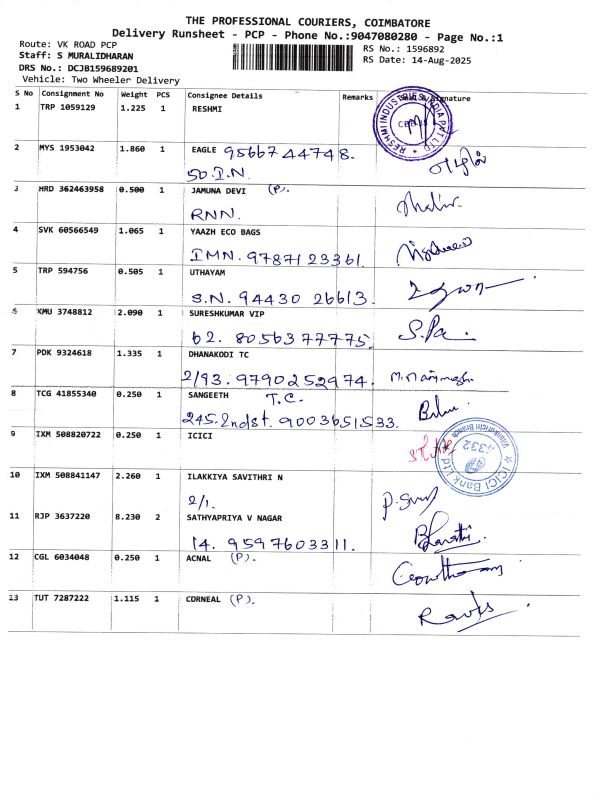 THE PROFESSIONAL COURIERS, COIMBATORE
Delivery Runsheet - PCP - Phone No.:9047080280 - Page No.:1
Route: VK ROAD PCP
Staff: S MURALIDHARAN
DRS No.: DCJB159689201
Vehicle: Two Wheeler Delivery
RS No.: 1596892
RS Date: 14-Aug-2025
S No Consignment No Weight PCS Consignee Details Remarks Signature
1 TRP 1059129 1.225 1 RESHMI
RESHMI INDUSTRIES INDIA PVT LTD
2 MYS 1953042 1.860 1 EAGLE 9566744748.
50.I.N.
3 HRD 362463958 0.500 1 JAMUNA DEVI (P).
RNN.
4 SVK 60566549 1.065 1 YAAZH ECO BAGS
IMN. 9787123361.
5 TRP 594756 0.505 1 UTHAYAM
S.N. 94430 26613.
6 KMU 3748812 2.090 1 SURESHKUMAR VIP
62. 8056377775. S.Pa.
7 PDK 9324618 1.335 1 DHANAKODI TC
2/93. 9790252974.
8 TCG 41855340 0.250 1 SANGEETH T.C.
245. 2nd st. 9003651533.
9 IXM 508820722 0.250 1 ICICI
ICICI Bank Ltd
Vilankurichi Branch
10 IXM 508841147 2.260 1 ILAKKIYA SAVITHRI N
2/1.
11 RJP 3637220 8.230 2 SATHYAPRIYA V NAGAR
14. 9597603311. Bharathi
12 CGL 6034048 0.250 1 ACNAL (P). Gowtham
13 TUT 7287222 1.115 1 CORNEAL (P).